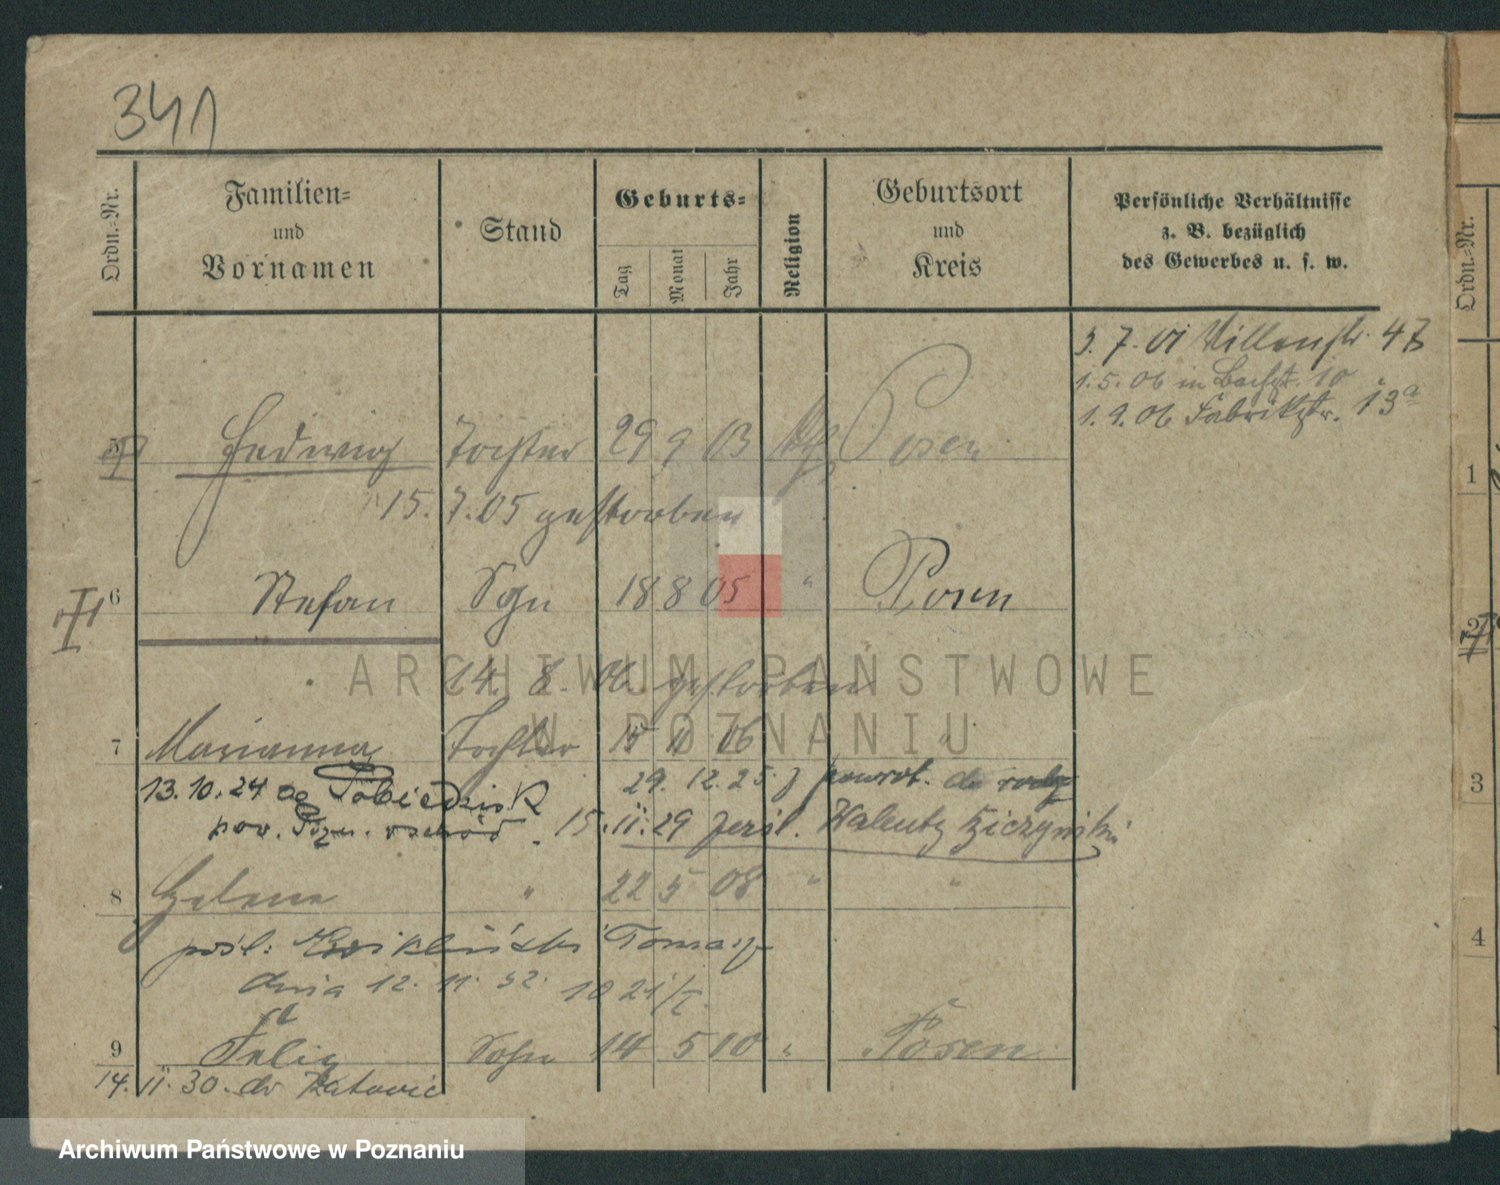 341
Ordn.-Nr.
Familien-
und
Vornamen
Stand
Geburts-
Tag
Monat
Jahr
Religion
Geburtsort
und
Kreis
Persönliche Verhältnisse
z. B. bezüglich
des Gewerbes u. s. w.
3. 7. 01 Villenstr. 47
1. 5. 06 in Bachstr. 10
1. 9. 06 Fabrikstr. 13a
5 Hedwig Tochter 29 9 03 kth Posen
15. 7. 05 gestorben
6 Stefan Sohn 18 8 05 " Posen
14. 8. 06 gestorben
7 Marianna Tochter 15 11 06 "
13. 10. 24 do Pobiedzisk
29. 12. 25 z powrot. do
pow. Pozn. wschód.
15. 11. 29 Walenty
8 Helena " 22 5 08 " "
pośl: Tomasz
dnia 12. 11. 32. 1021/I.
9 Felix Sohn 14 5 10 " Posen
14. 11. 30. do Katowic
ARCHIWUM PAŃSTWOWE
W POZNANIU
Archiwum Państwowe w Poznaniu
Ordn.-Nr.
1
2
3
4